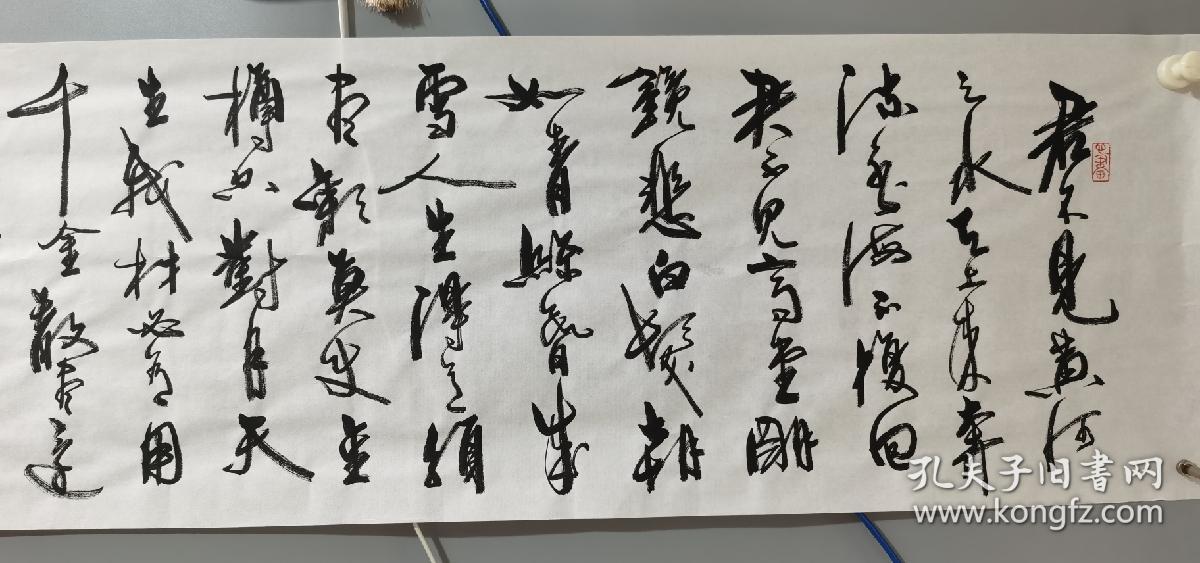 君不見黄河
之水天上来奔
流到海不復回
君不见高堂明
鏡悲白髮朝
如青絲暮成
雪人生得意須
尽歡莫使金
樽空對月天
生我材必有用
千金散尽还
孔夫子旧书网
www.kongfz.com